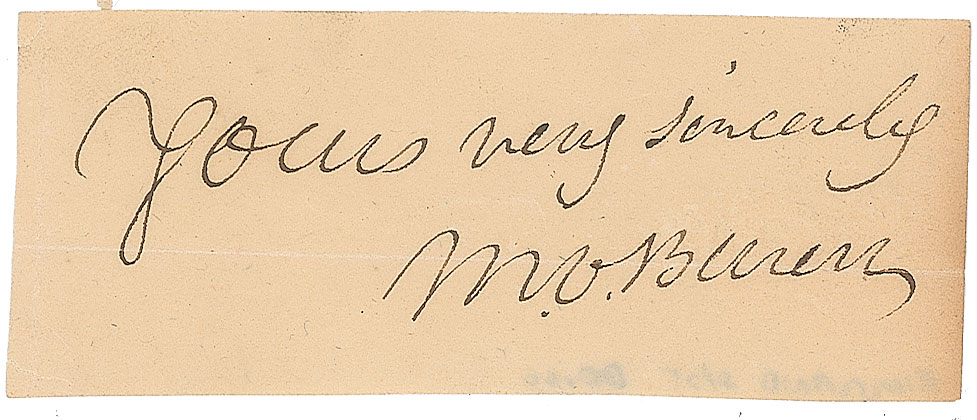 Yours very sincerely
M. V. Buren